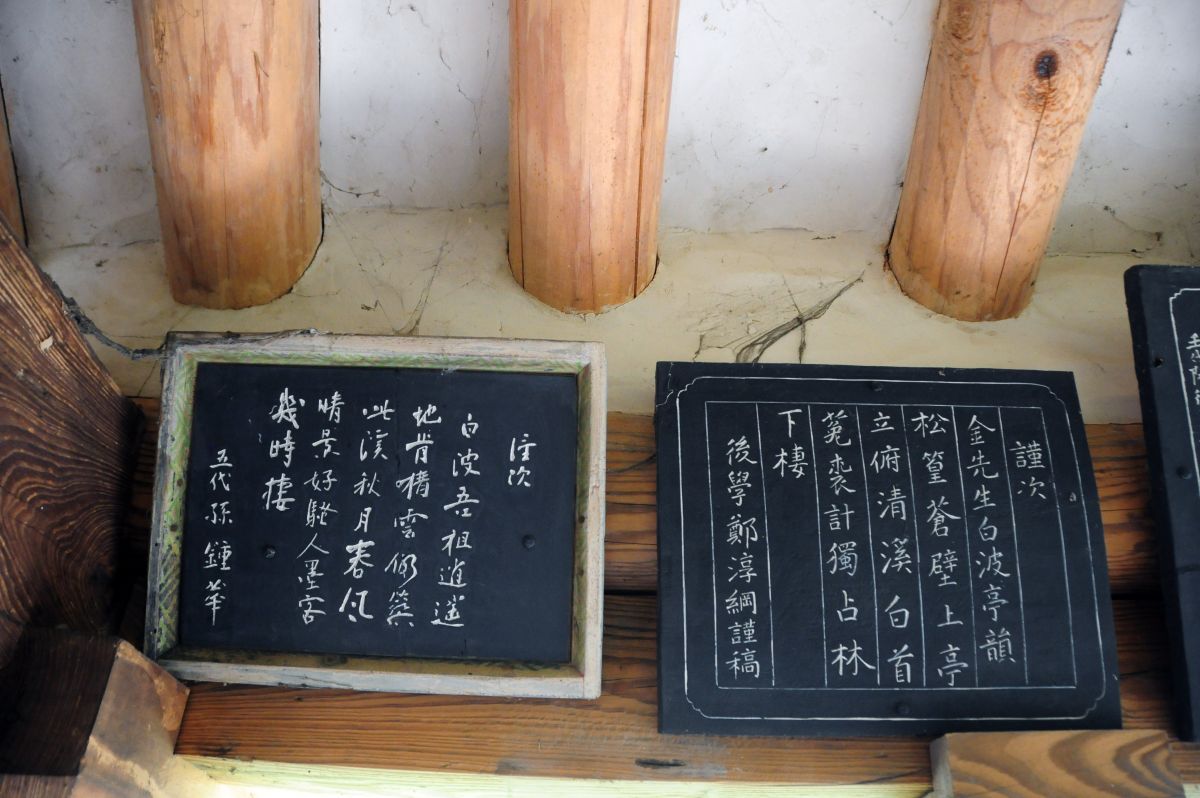 謹次
金先生白波亭韻
松篁蒼壁上亭
立俯清溪白首
菟裘計獨占林
下棲
後學鄭淳綱謹稿
謹次
白波吾祖逍遙
地肯構雲仍築
此溪秋月春風
晴景好騷人墨客
幾時棲
五代孫鍾華